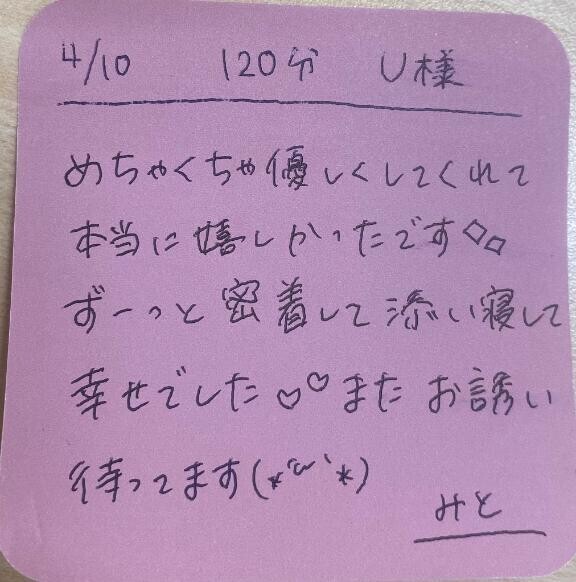 4/10 120分 U様
めちゃくちゃ優しくしてくれて
本当に嬉しかったです◇◇
ずーっと密着して添い寝して
幸せでした♡♡またお誘い
待ってます(*´ω`*)
みと